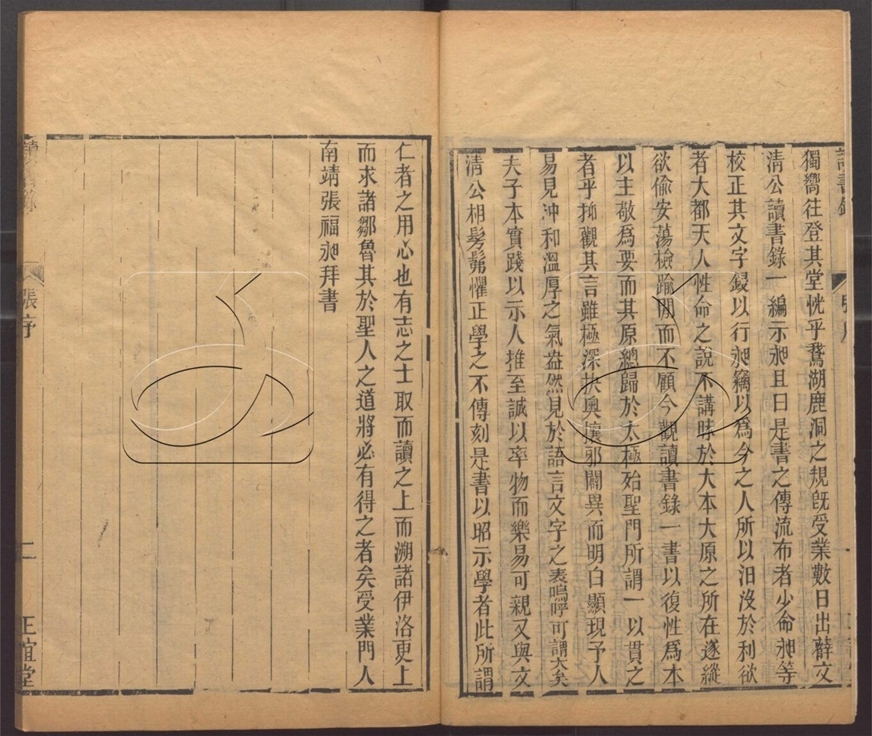 獨嚮往登其堂恍乎鵞湖鹿洞之規旣受業數日出薛文
清公讀書錄一編示昶且曰是書之傳流布者少命昶等
校正其文字鋟以行昶竊以爲今之人所以汨沒於利欲
者大都天人性命之說不講昧於大本大原之所在遂縱
欲偷安蕩檢踰閑而不顧今觀讀書錄一書以復性爲本
以主敬爲要而其原總歸於太極殆聖門所謂一以貫之
者乎抑觀其言雖極深抉奧攘邪闢異而明白顯現予人
易見冲和溫厚之氣盎然見於語言文字之表嗚呼可謂大矣
夫子本實踐以示人推至誠以率物而樂易可親又與文
清公相髣髴懼正學之不傳刻是書以昭示學者此所謂
讀書錄
張序
二
正誼堂
仁者之用心也有志之士取而讀之上而溯諸伊洛更上
而求諸鄒魯其於聖人之道將必有得之者矣受業門人
南靖張福昶拜書